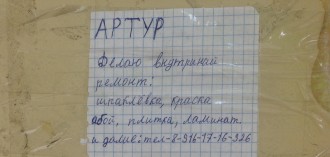 АРТУР
Делаю внутриний
ремонт:
шпаклёвка, краска
обой, плитка, ламинат.
и далие: тел-8-916-17-16-926